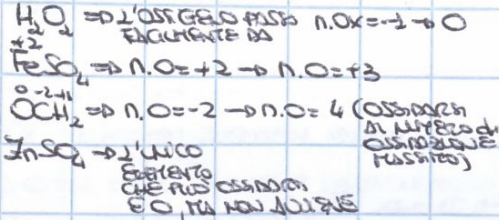 H₂O₂ => L'OSSIGENO PASSA FACILMENTE DA n.Ox=-1 → 0
+2
FeSO₄ => n.O=+2 → n.O=+3
0 -2 +1
OCH₂ => n.O=-2 → n.O= 4 (OSSIDARSI AL NUMERO di OSSIDAZIONE MASSIMO)
ZnSO₄ → L'UNICO ELEMENTO CHE PUÒ OSSIDARSI È O, MA NON AVVIENE